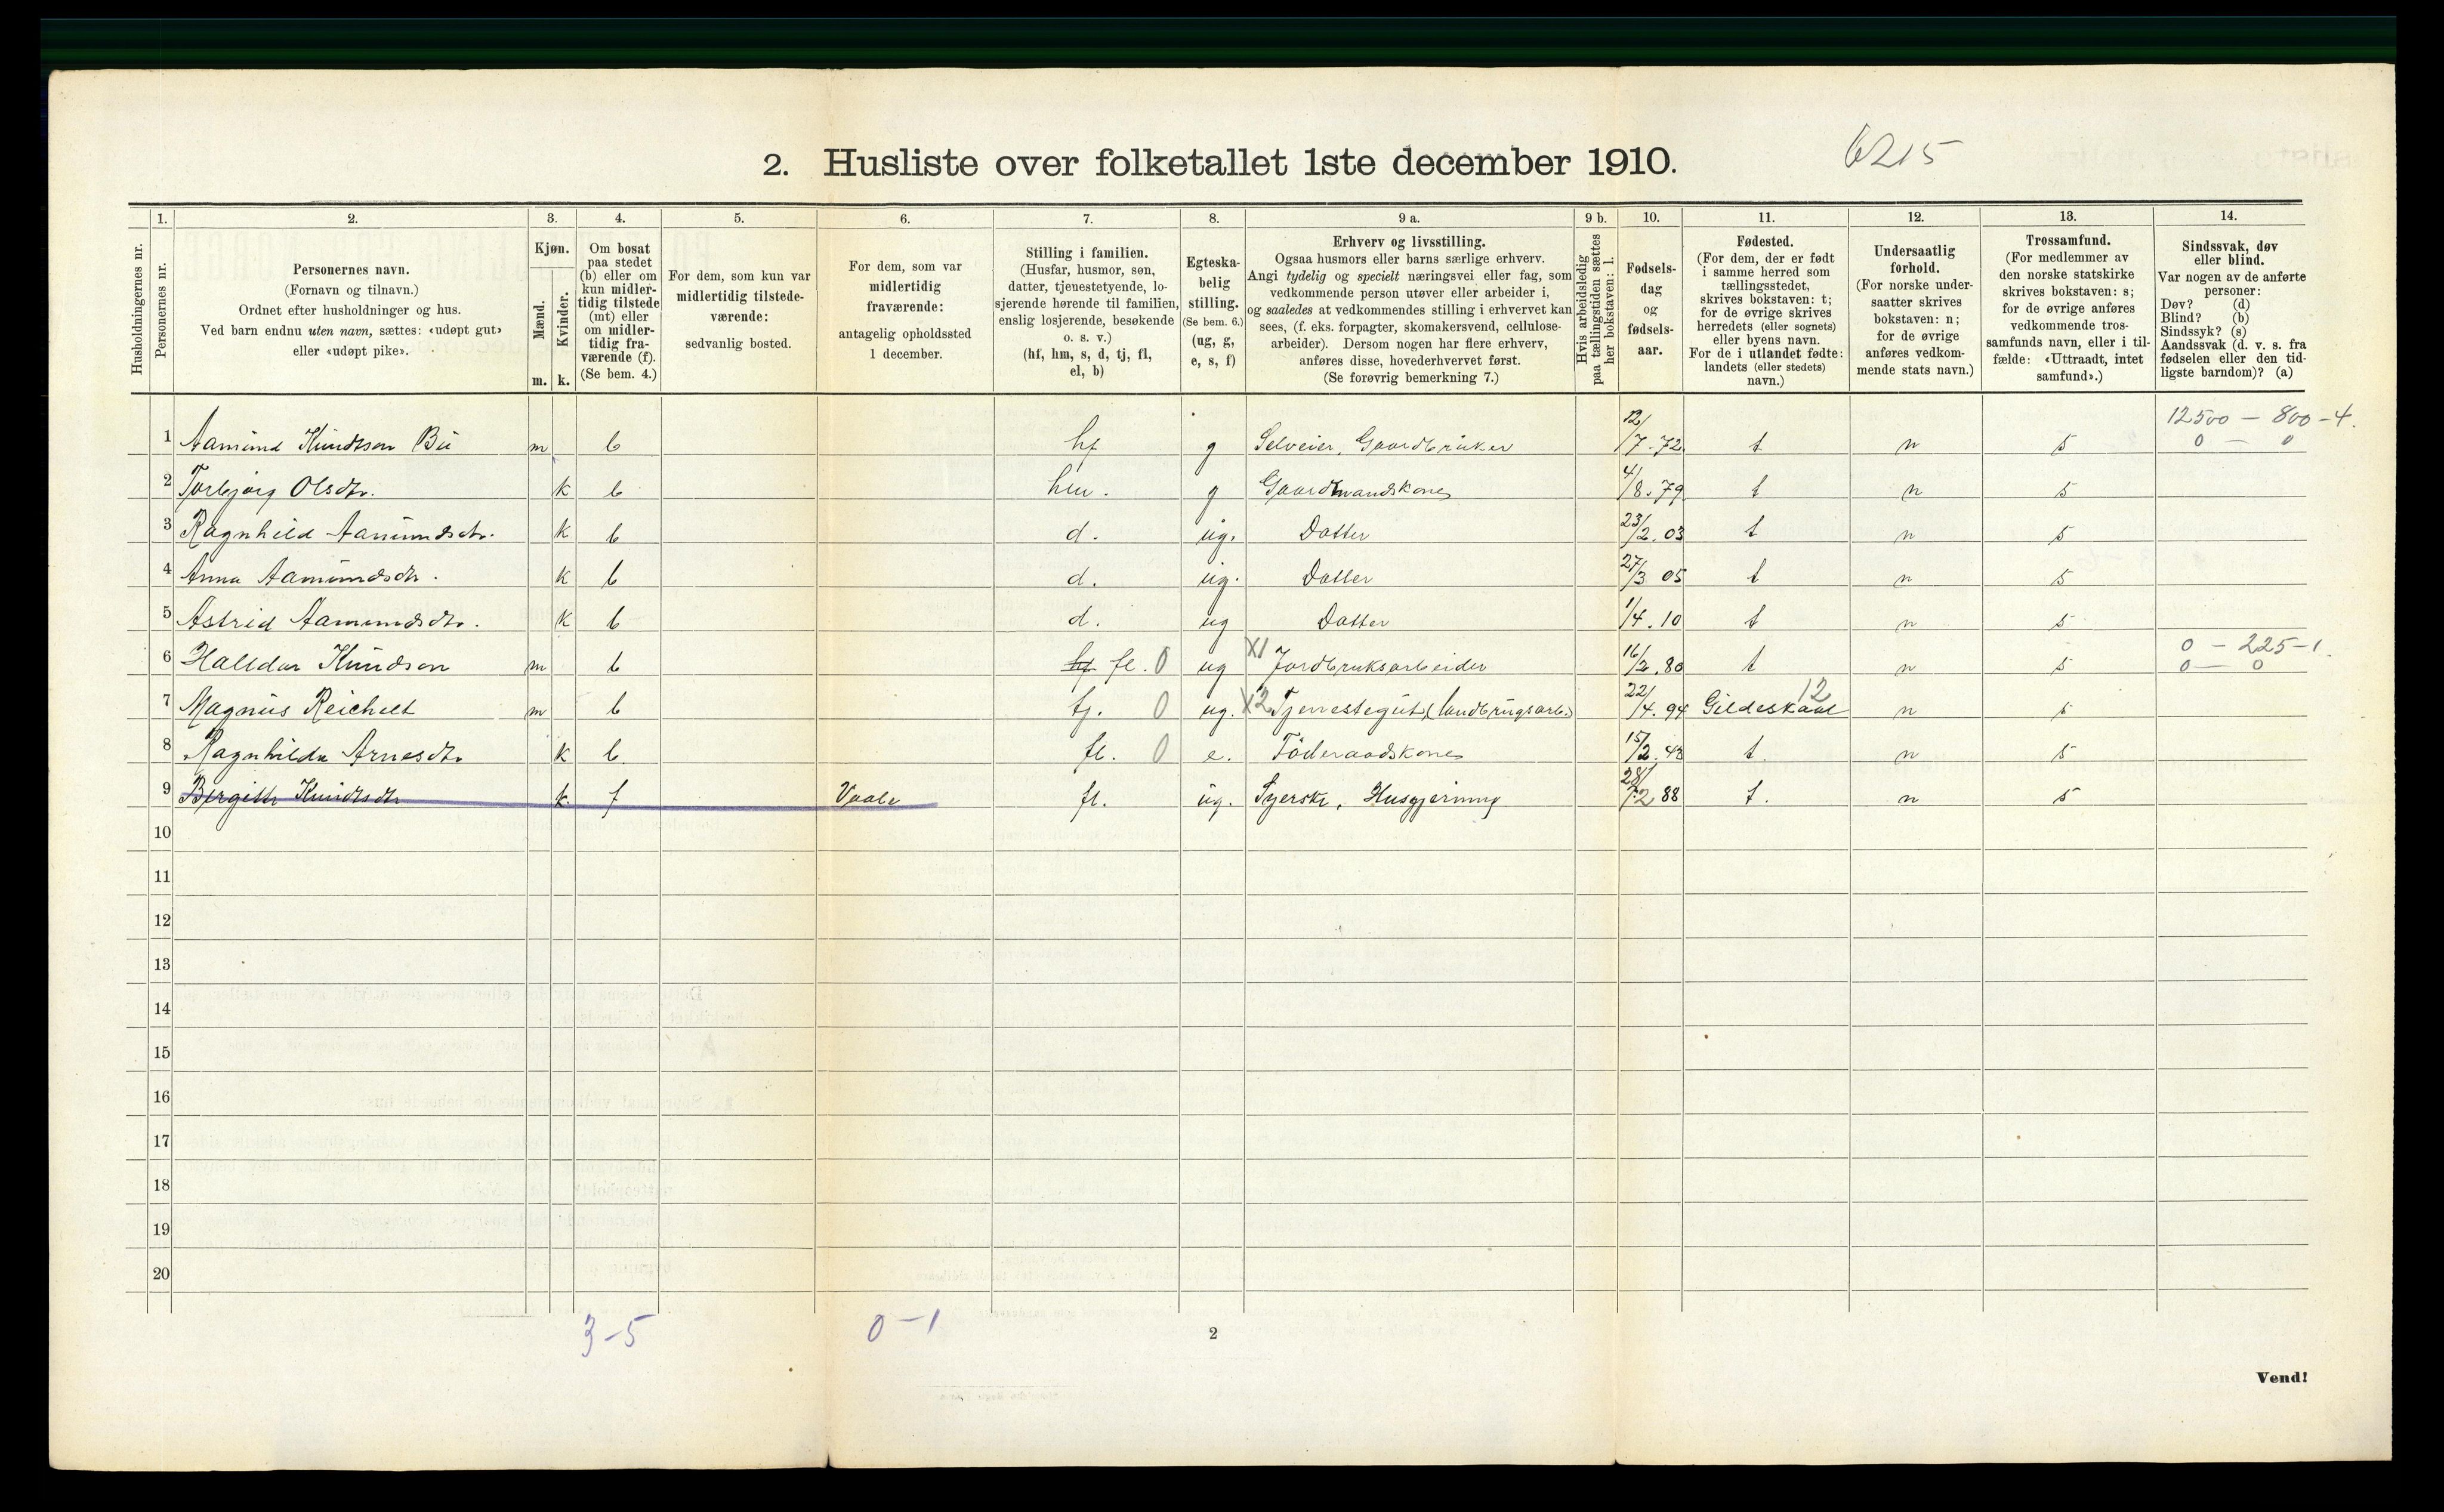 2. Husliste over folketallet 1ste december 1910.
6215
1.
2.
3.
4.
5.
6.
7.
8.
9 a.
9 b.
10.
11.
12.
13.
14.
Husholdningernes nr.
Personernes nr.
Personernes navn.
(Fornavn og tilnavn.)
Ordnet efter husholdninger og hus.
Ved barn endnu uten navn, sættes: «udøpt gut»
eller «udøpt pike».
Kjøn.
Mænd.
Kvinder.
m.
k.
Om bosat
paa stedet
(b) eller om
kun midler-
tidig tilstede
(mt) eller
om midler-
tidig fra-
værende (f).
(Se bem. 4.)
For dem, som kun var
midlertidig tilstede-
værende:
sedvanlig bosted.
For dem, som var
midlertidig
fraværende:
antagelig opholdssted
1 december.
Stilling i familien.
(Husfar, husmor, søn,
datter, tjenestetyende, lo-
sjerende hørende til familien,
enslig losjerende, besøkende
o. s. v.)
(hf, hm, s, d, tj, fl,
el, b)
Egteska-
belig
stilling.
(Se bem. 6.)
(ug, g,
e, s, f)
Erhverv og livsstilling.
Ogsaa husmors eller barns særlige erhverv.
Angi tydelig og specielt næringsvei eller fag, som
vedkommende person utøver eller arbeider i,
og saaledes at vedkommendes stilling i erhvervet kan
sees, (f. eks. forpagter, skomakersvend, cellulose-
arbeider). Dersom nogen har flere erhverv,
anføres disse, hovederhvervet først.
(Se forøvrig bemerkning 7.)
Hvis arbeidsledig
paa tællingstiden sættes
her bokstaven: l.
Fødsels-
dag
og
fødsels-
aar.
Fødested.
(For dem, der er født
i samme herred som
tællingsstedet,
skrives bokstaven: t;
for de øvrige skrives
herredets (eller sognets)
eller byens navn.
For de i utlandet fødte:
landets (eller stedets)
navn.)
Undersaatlig
forhold.
(For norske under-
saatter skrives
bokstaven: n;
for de øvrige
anføres vedkom-
mende stats navn.)
Trossamfund.
(For medlemmer av
den norske statskirke
skrives bokstaven: s;
for de øvrige anføres
vedkommende tros-
samfunds navn, eller i til-
fælde: «Uttraadt, intet
samfund».)
Sindssvak, døv
eller blind.
Var nogen av de anførte
personer:
Døv? (d)
Blind? (b)
Sindssyk? (s)
Aandssvak (d. v. s. fra
fødselen eller den tid-
ligste barndom)? (a)
12500 – 800 – 4.
1 Aamund Knudtson Bu m b hf g Selveier, Gaardbruker 12/7-72 t n s 0 – 0
2 Torbjørg Olsdtr. k b hm. g Gaardmandskone 4/8.79 t n s
3 Ragnhild Aamundsdtr. k b d. ug. Datter 23/2.03 t n s
4 Anna Aamundsdtr. k b d. ug. Datter 27/3 05 t n s
5 Astrid Aamundsdtr. k b d. ug Datter 1/4.10 t n s
0 – 225 – 1.
6 Halldor Knudson m b hf fl. 0 ug X1 Jordbruksarbeider 16/2.80 t n s 0 – 0
7 Magnus Reichelt m b tj. 0 ug. X2 Tjenestegut (landbrugsarb.) 22/4.94 Gildeskaal 12 n s
8 Ragnhilda Arnesdtr k b fl. 0 e. Föderaadskone 15/2.43 t. n s
9 Bergitte Knudtsdtr k. f Vaale fl. ug. Syerske, Husgjerning 28/2 88 t. n s
10
11
12
13
14
15
16
17
18
19
20
3-5
0-1
2
Vend!